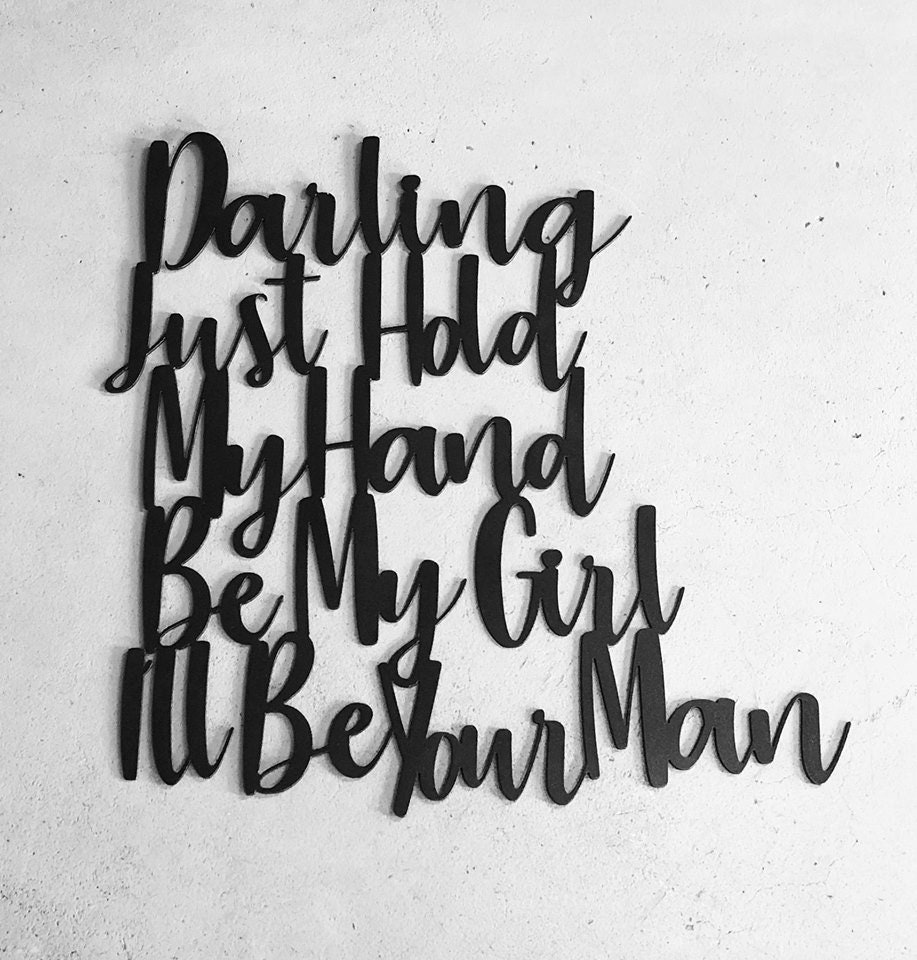 Darling
Just Hold
My Hand
Be My Girl
I'll Be Your Man